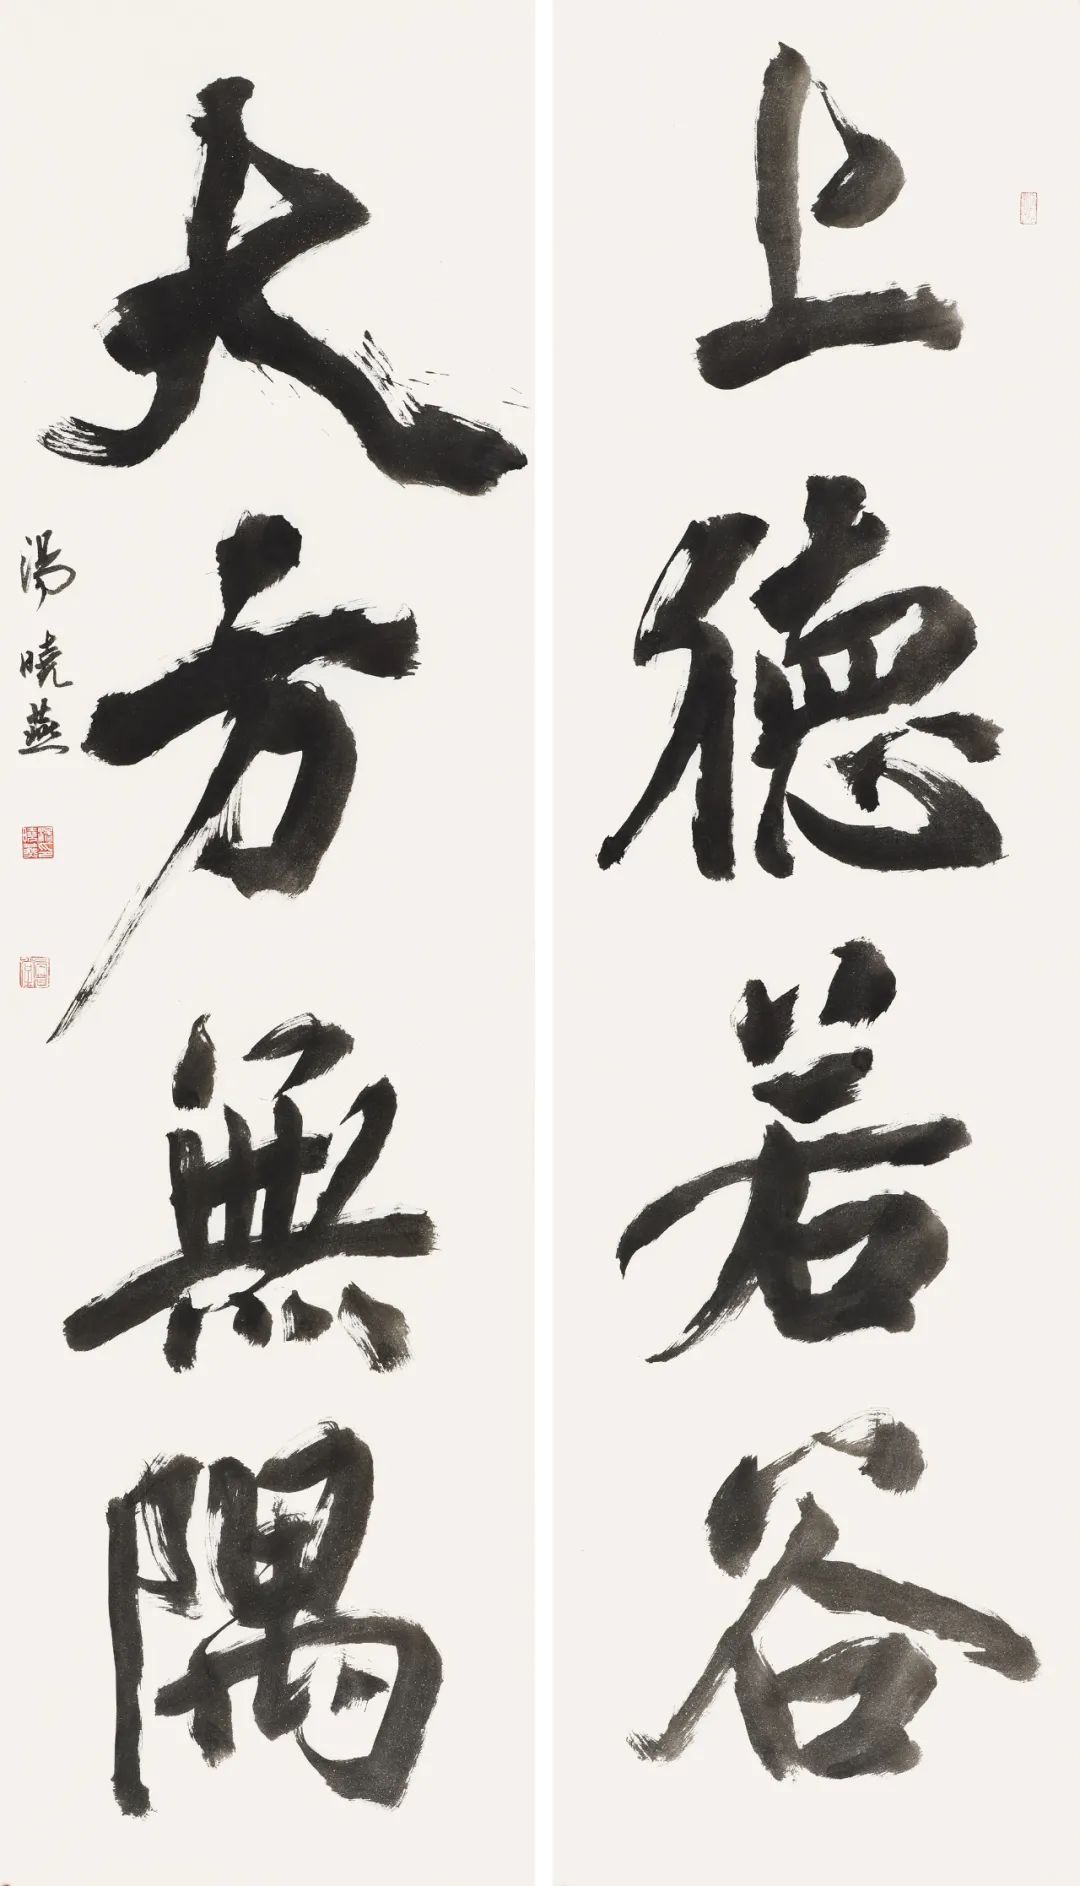 上德若谷
大方無隅
湯曉燕